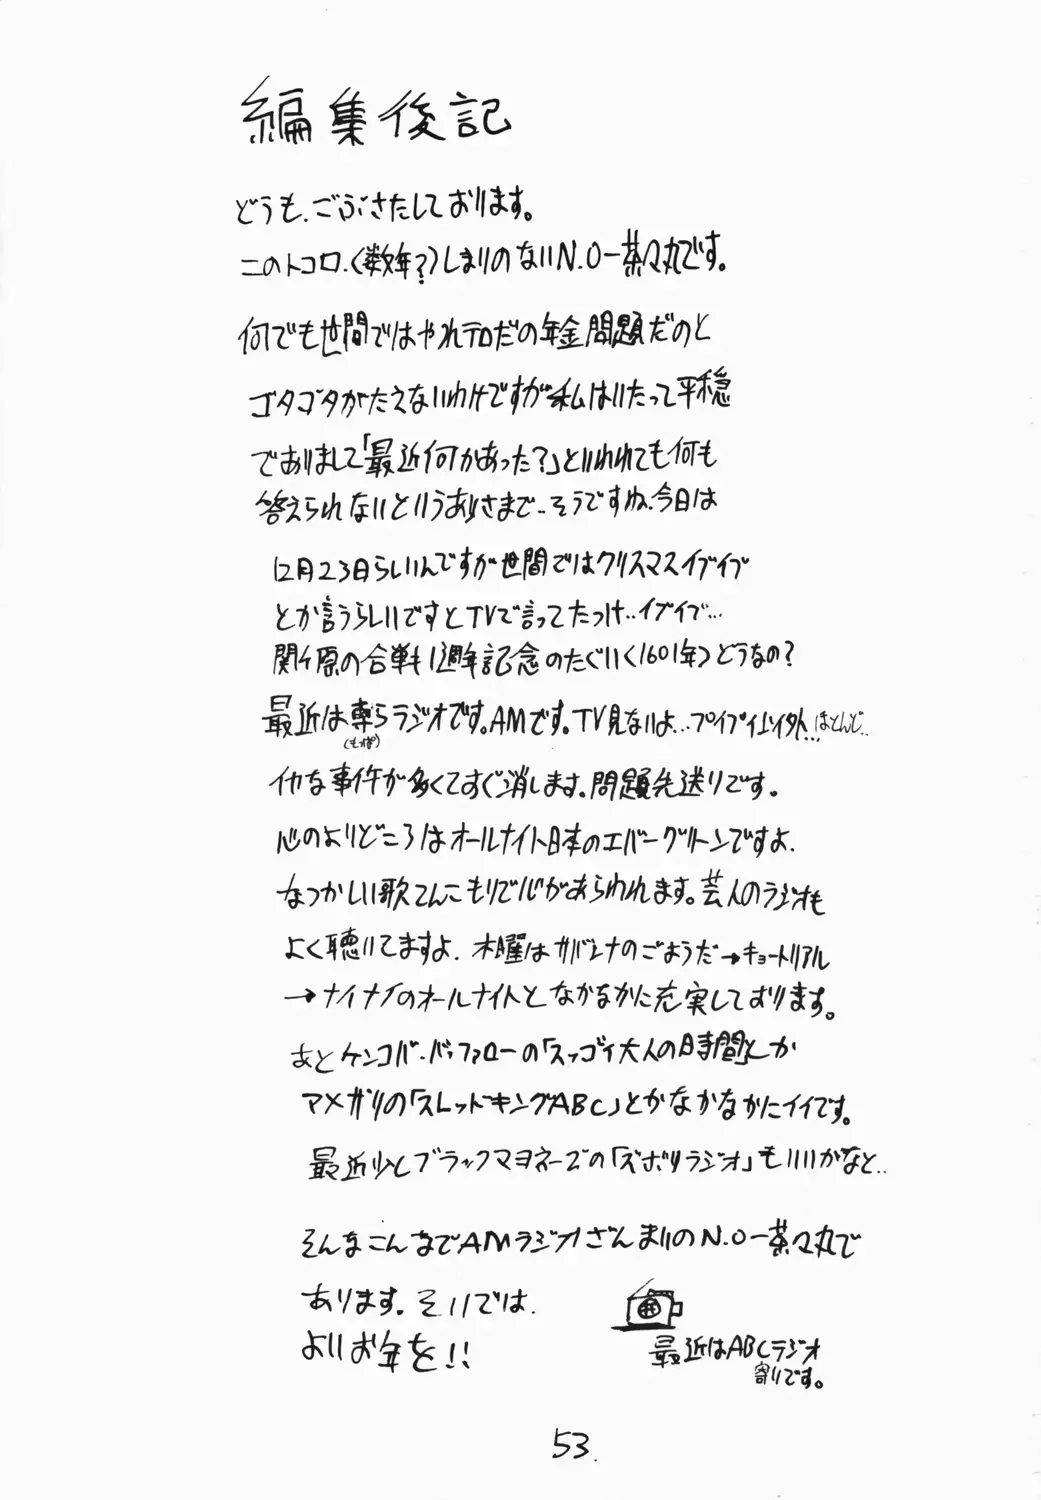 編集後記
どうも、ごぶさたしております。
このトコロ、(数年?)しまりのないN.O-茶々丸です。
何でも世間ではやれテロだの年金問題だのと
ゴタゴタがたえないわけですが私はいたって平穏
でありまして「最近何かあった?」といわれても何も
答えられないというありさまで‥そうですね、今日は
12月23日らしいんですが世間ではクリスマスイブイブ
とか言うらしいですとTVで言ってたっけ‥イブイブ…
関ヶ原の合戦も1週年記念のたぐい<1601年>どうなの?
最近は専らラジオです。AMです。TV見ないよ…プイプイ以外…ほとんど‥
(もっぱ)
イカな事件が多くてすぐ消します。問題先送りです。
心のよりどころはオールナイト日本のエバーグリーンですよ.
なつかしい歌てんこもりで心があらわれます。芸人のラジオも
よく聴いてますよ. 木曜はサバンナのごようだ→キョートリアル
→ナイナイのオールナイトとなかなかに充実しております。
あとケンコバ・バッファローの「スッゴイ大人の時間」とか
アメザリの「スレッドキングABC」とかなかなかにイイです。
最近少しブラックマヨネーズの「ズボリラジオ」もいいかなと‥
そんなこんなでAMラジオざんまいのN.O-茶々丸で
あります。それでは.
よいお年を!!
最近はABCラジオ
寄りです。
53.